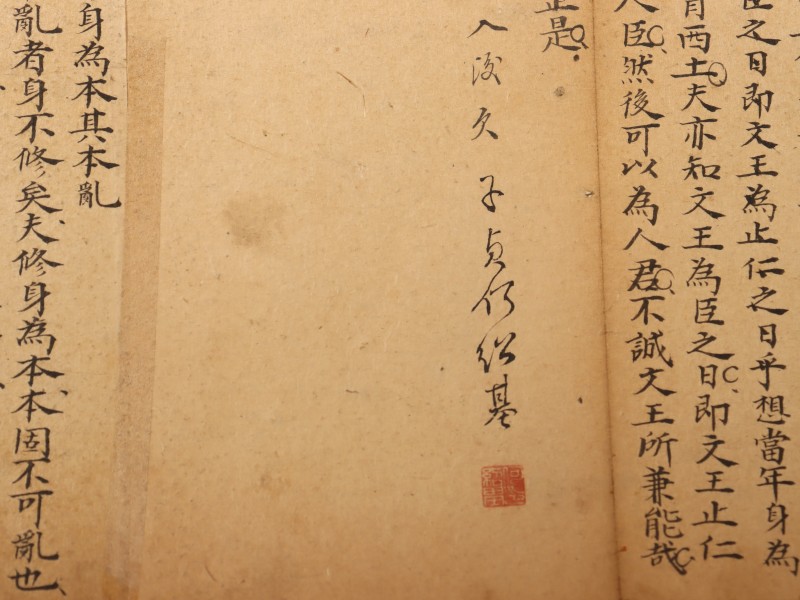 臣之日即文王為止仁之日乎想當年身為
西土夫亦知文王為臣之日即文王止仁
人臣然後可以為人君不誠文王所兼能哉
正是
入後 子貞何紹基
身為本其本亂
亂者身不修矣夫修身為本本固不可亂也